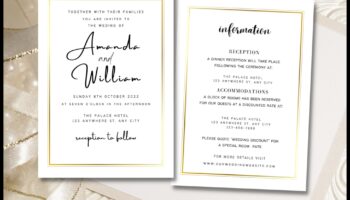 TOGETHER WITH THEIR FAMILIES
YOU ARE INVITED TO
THE WEDING OF
Amanda
and
William
SUNDAY 8TH OCTOBER 2022
AT SEVEN O'CLOCK IN THE AFTERNOON
THE PALACE HOTEL
123 ANYWHERE ST. ANY CITY
reception to follow
information
RECEPTION
A DINNER RECEPTION WILL TAKE PLACE
FOLLOWING THE CEREMONY AT:
THE PALACE HOTEL
123 ANYWHERE ST. ANY CITY
ACCOMMODATIONS
A BLOCK OF ROOMS HAS BEEN RESERVED
FOR OUR GUESTS AT A DISCOUNTED RATE AT:
THE PALACE HOTEL
123 ANYWHERE ST. ANY CITY
123-456-7890
PLEASE QUOTE "WEDDING DISCOUNT" FOR
THE DISCOUNTED RATE
FOR MORE DETAILS, PLEASE VISIT OUR
WEDDING WEBSITE
WWW.OURWEDDINGWEBSITE.COM